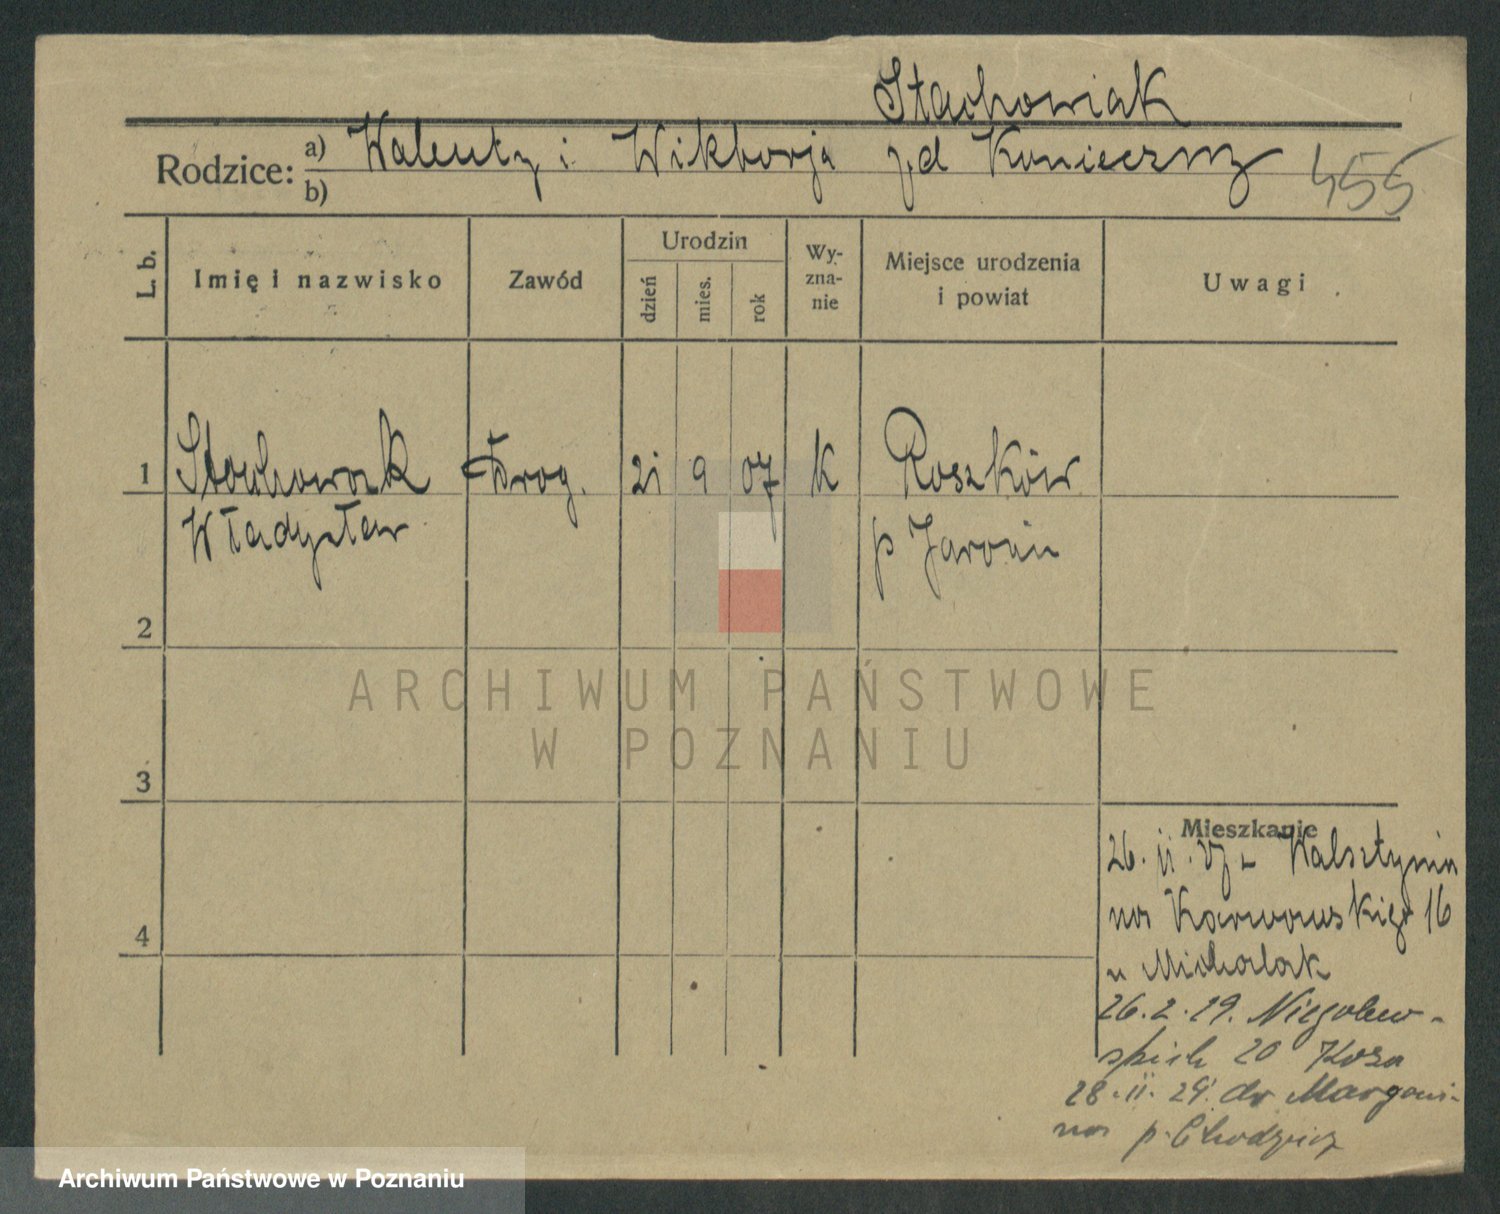 Stachowiak
Rodzice: a) Walenty i Wiktorja p.d Konieczny
b)
455
L. b.
Imię i nazwisko
Zawód
Urodzin
dzień
mies.
rok
Wy-
zna-
nie
Miejsce urodzenia
i powiat
Uwagi
1 Stachowiak Drog. 21 9 07 k Roszków
Władysław p Jarocin
2
3
4
Mieszkanie
26. 11. 27
na Karwowskiego 16
u Michalak
26. 2. 29. Niegolew-
skich 20 Koza
28. II. 29. do Margoni-
na p. Chodzież
ARCHIWUM PAŃSTWOWE
W POZNANIU
Archiwum Państwowe w Poznaniu